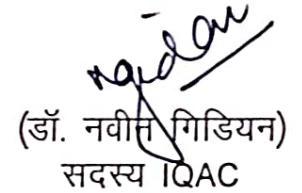 (डॉ. नवीन गिडियन)
सदस्य IQAC